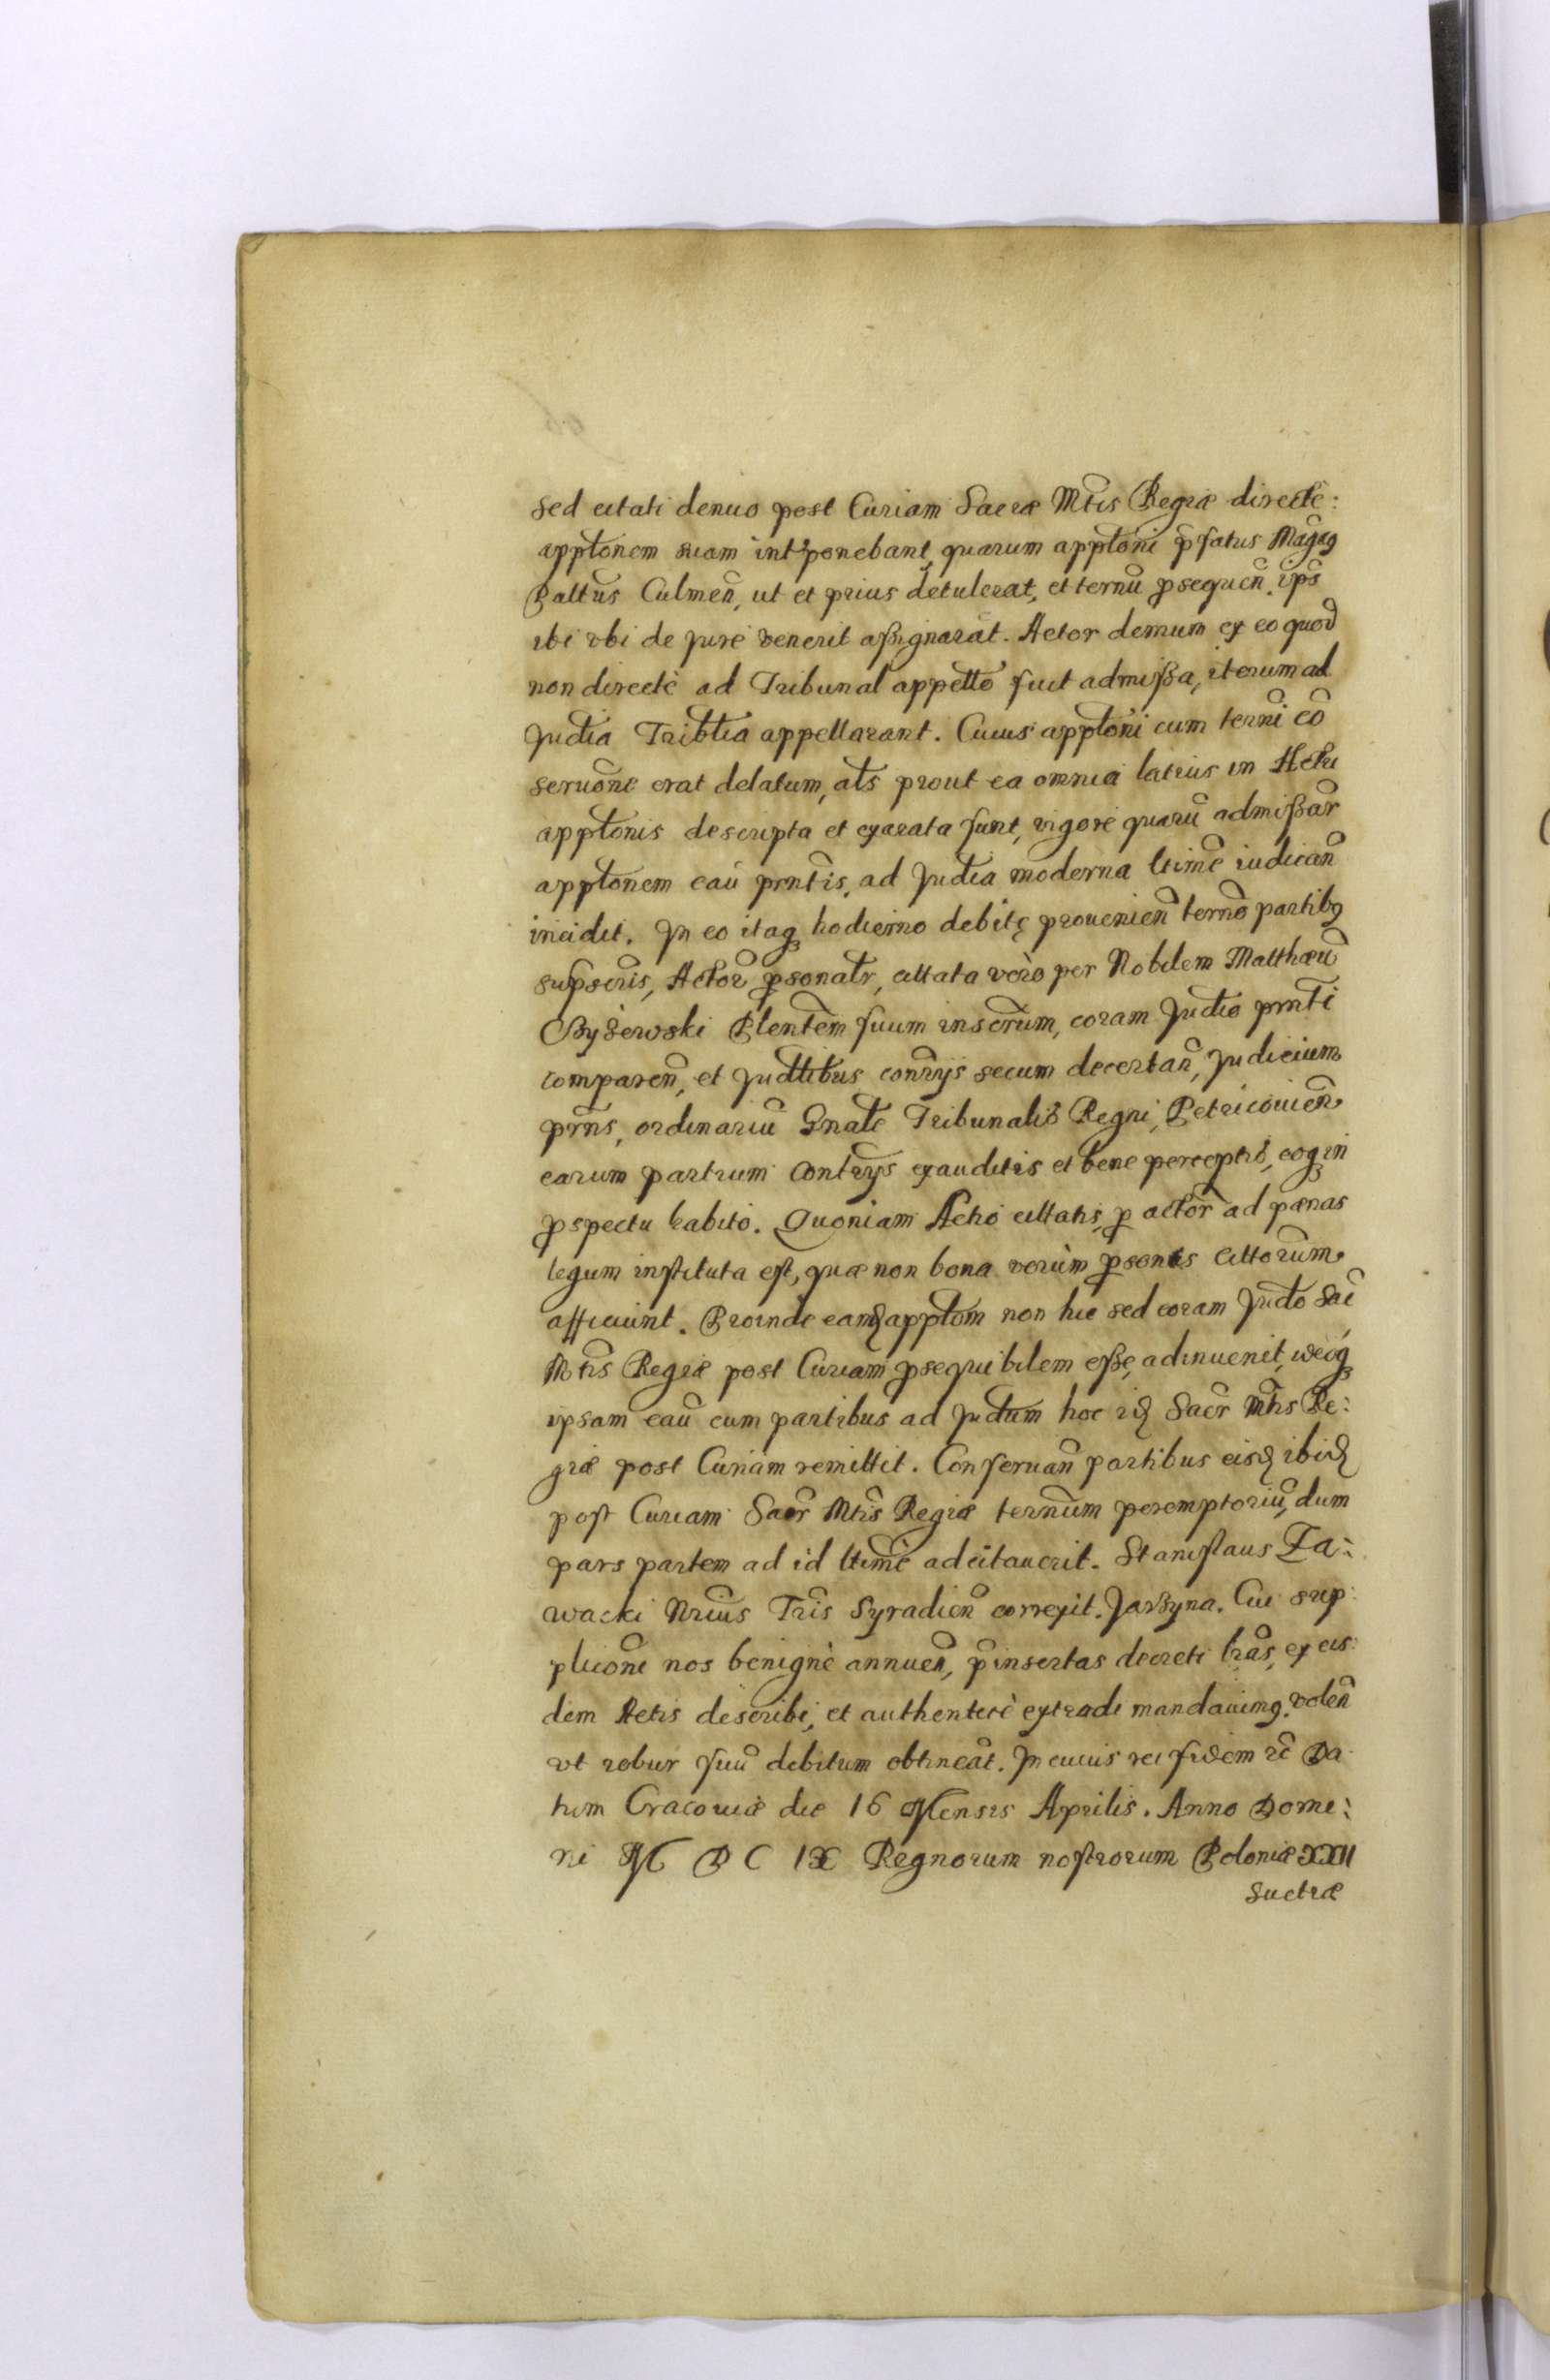 sed citati denuo post Curiam Sacræ Mtis Regiæ directè:
appłonem suam intponebant, quarum appłoni p̃fatus Mag̃cus
Pałłus Culmen̄, ut et prius detulerat, et ternũ prosequen̄. ips̃
ibi vbi de jure venerit aßignarat. Actor demum ex eo quod
non directè ad Tribunal appełło fuit admißa, iterum ad
Judia Tribłia appellarant. Cuius appłoni cum terni cõ
seruõne erat delatum, ałs prout ea omnia latius in Actu
appłonis descripta et exarata sunt, vigore quarũ admißar̃
appłonem caũ prntis, ad Judia moderna łtimẽ iudican̄
incidit. In eo itaq hodierno debitę prouenien̄ ternõ partibq
supscris, Actor̃ psonałr, cittata verò per Nobilem Matthæũ
Byżewski Płentem suum inscrum, coram Judio prnti
comparen̄, et Judłibus conrijs secum decertan̄, Judicium
prñs, ordinariũ Gnałe Tribunalis Regni, Petricouien̄
earum partium contrijs exauditis et bene perceptis, eoq in
prospectu habito. Quoniam Actio cittatis, p actor̃ ad pænas
legum instituta est, quæ non bona verùm psonas cittorum
afficiunt. Proinde eamq appłom non hic sed coram Judo Sac̃
Mtis Regiæ post Curiam prosequibilem eßę, adinuenit, ideoq
ipsam caũ cum partibus ad Judum hoc idq Sacr̃ Mtis Re:
giæ post Curiam remittit. Conseruan̄ partibus eisdq ibidq
post Curiam Sacr̃ Mtis Regiæ ternum peremptoriũ, dum
pars partem ad id łtimẽ adcitauerit. Stanislaus Za:
wacki Nrius Tris Syradien̄ correxit. Jarzyna. Cui sup:
plicõni nos benignè annuen̄, p̃insertas decreti łras, ex eis:
dem Actis describi, et authenticè extradi mandauimq. volen̄
vt robur suũ debitum obtineat. In cuius rei fidem rc̃ Da
tum Cracouiæ die 16 Mensis Aprilis. Anno Domi:
ni M D C IX Regnorum nostrorum Poloniæ XXII
Suetiæ